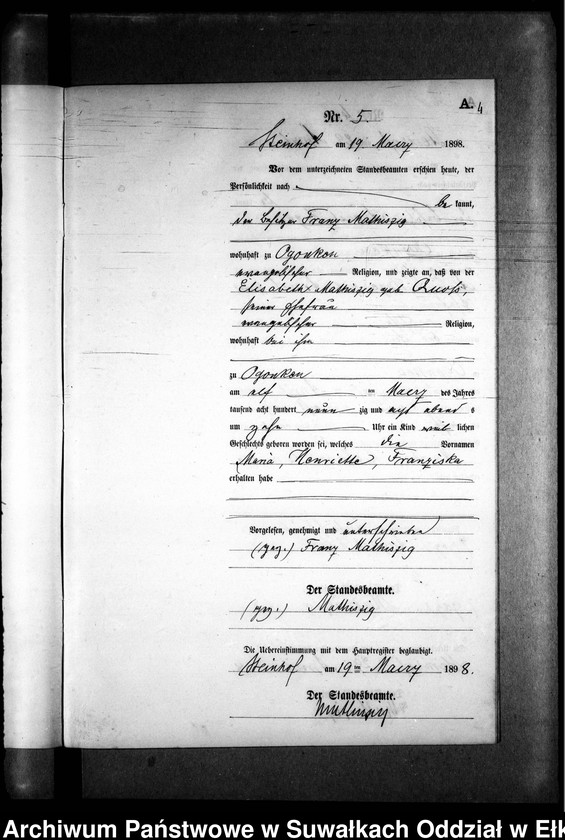 A. 4
Nr. 5.
Steinhof am 19 Maerz 1898.
Vor dem unterzeichneten Standesbeamten erschien heute, der
Persönlichkeit nach
be kannt,
der Besitzer Franz Mathiszig
wohnhaft zu Ogonken
evangelischer Religion, und zeigte an, daß von der
Elisabeth Mathiszig geb Quoß,
seiner Ehefrau
evangelischer Religion,
wohnhaft bei ihm
zu Ogonken
am elf ten Maerz des Jahres
tausend acht hundert neun zig und acht abend s
um zehn Uhr ein Kind weib lichen
Geschlechts geboren worden sei, welches die Vornamen
Maria, Henriette, Franziska
erhalten habe
Vorgelesen, genehmigt und unterschrieben
(gez.) Franz Mathiszig
Der Standesbeamte.
(gez.) Mathiszig
Die Uebereinstimmung mit dem Hauptregister beglaubigt.
Steinhof am 19 ten Maerz 1898.
Der Standesbeamte.
Archiwum Państwowe w Suwałkach Oddział w Ełk